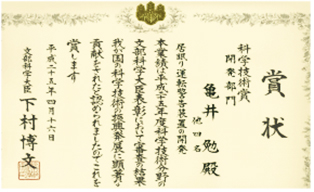 賞状
科学技術賞
開発部門
亀井 勉殿
他四名
居眠り運転警告装置の開発
本業績に平成二十五年度科学技術分野の
文部科学大臣表彰において審査の結果
我が国の科学技術の振興発展に顕著な
貢献をされたと認められましたのでこれを
賞します
平成二十五年四月十六日
文部科学大臣 下村博文